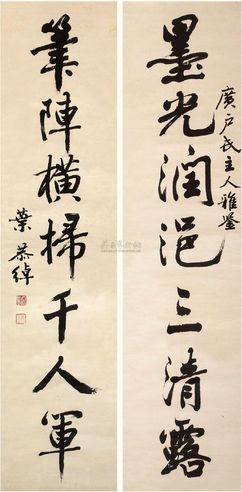 廣户氏主人雅鉴
墨光润浥三清露
筆陣橫掃千人軍
葉恭綽